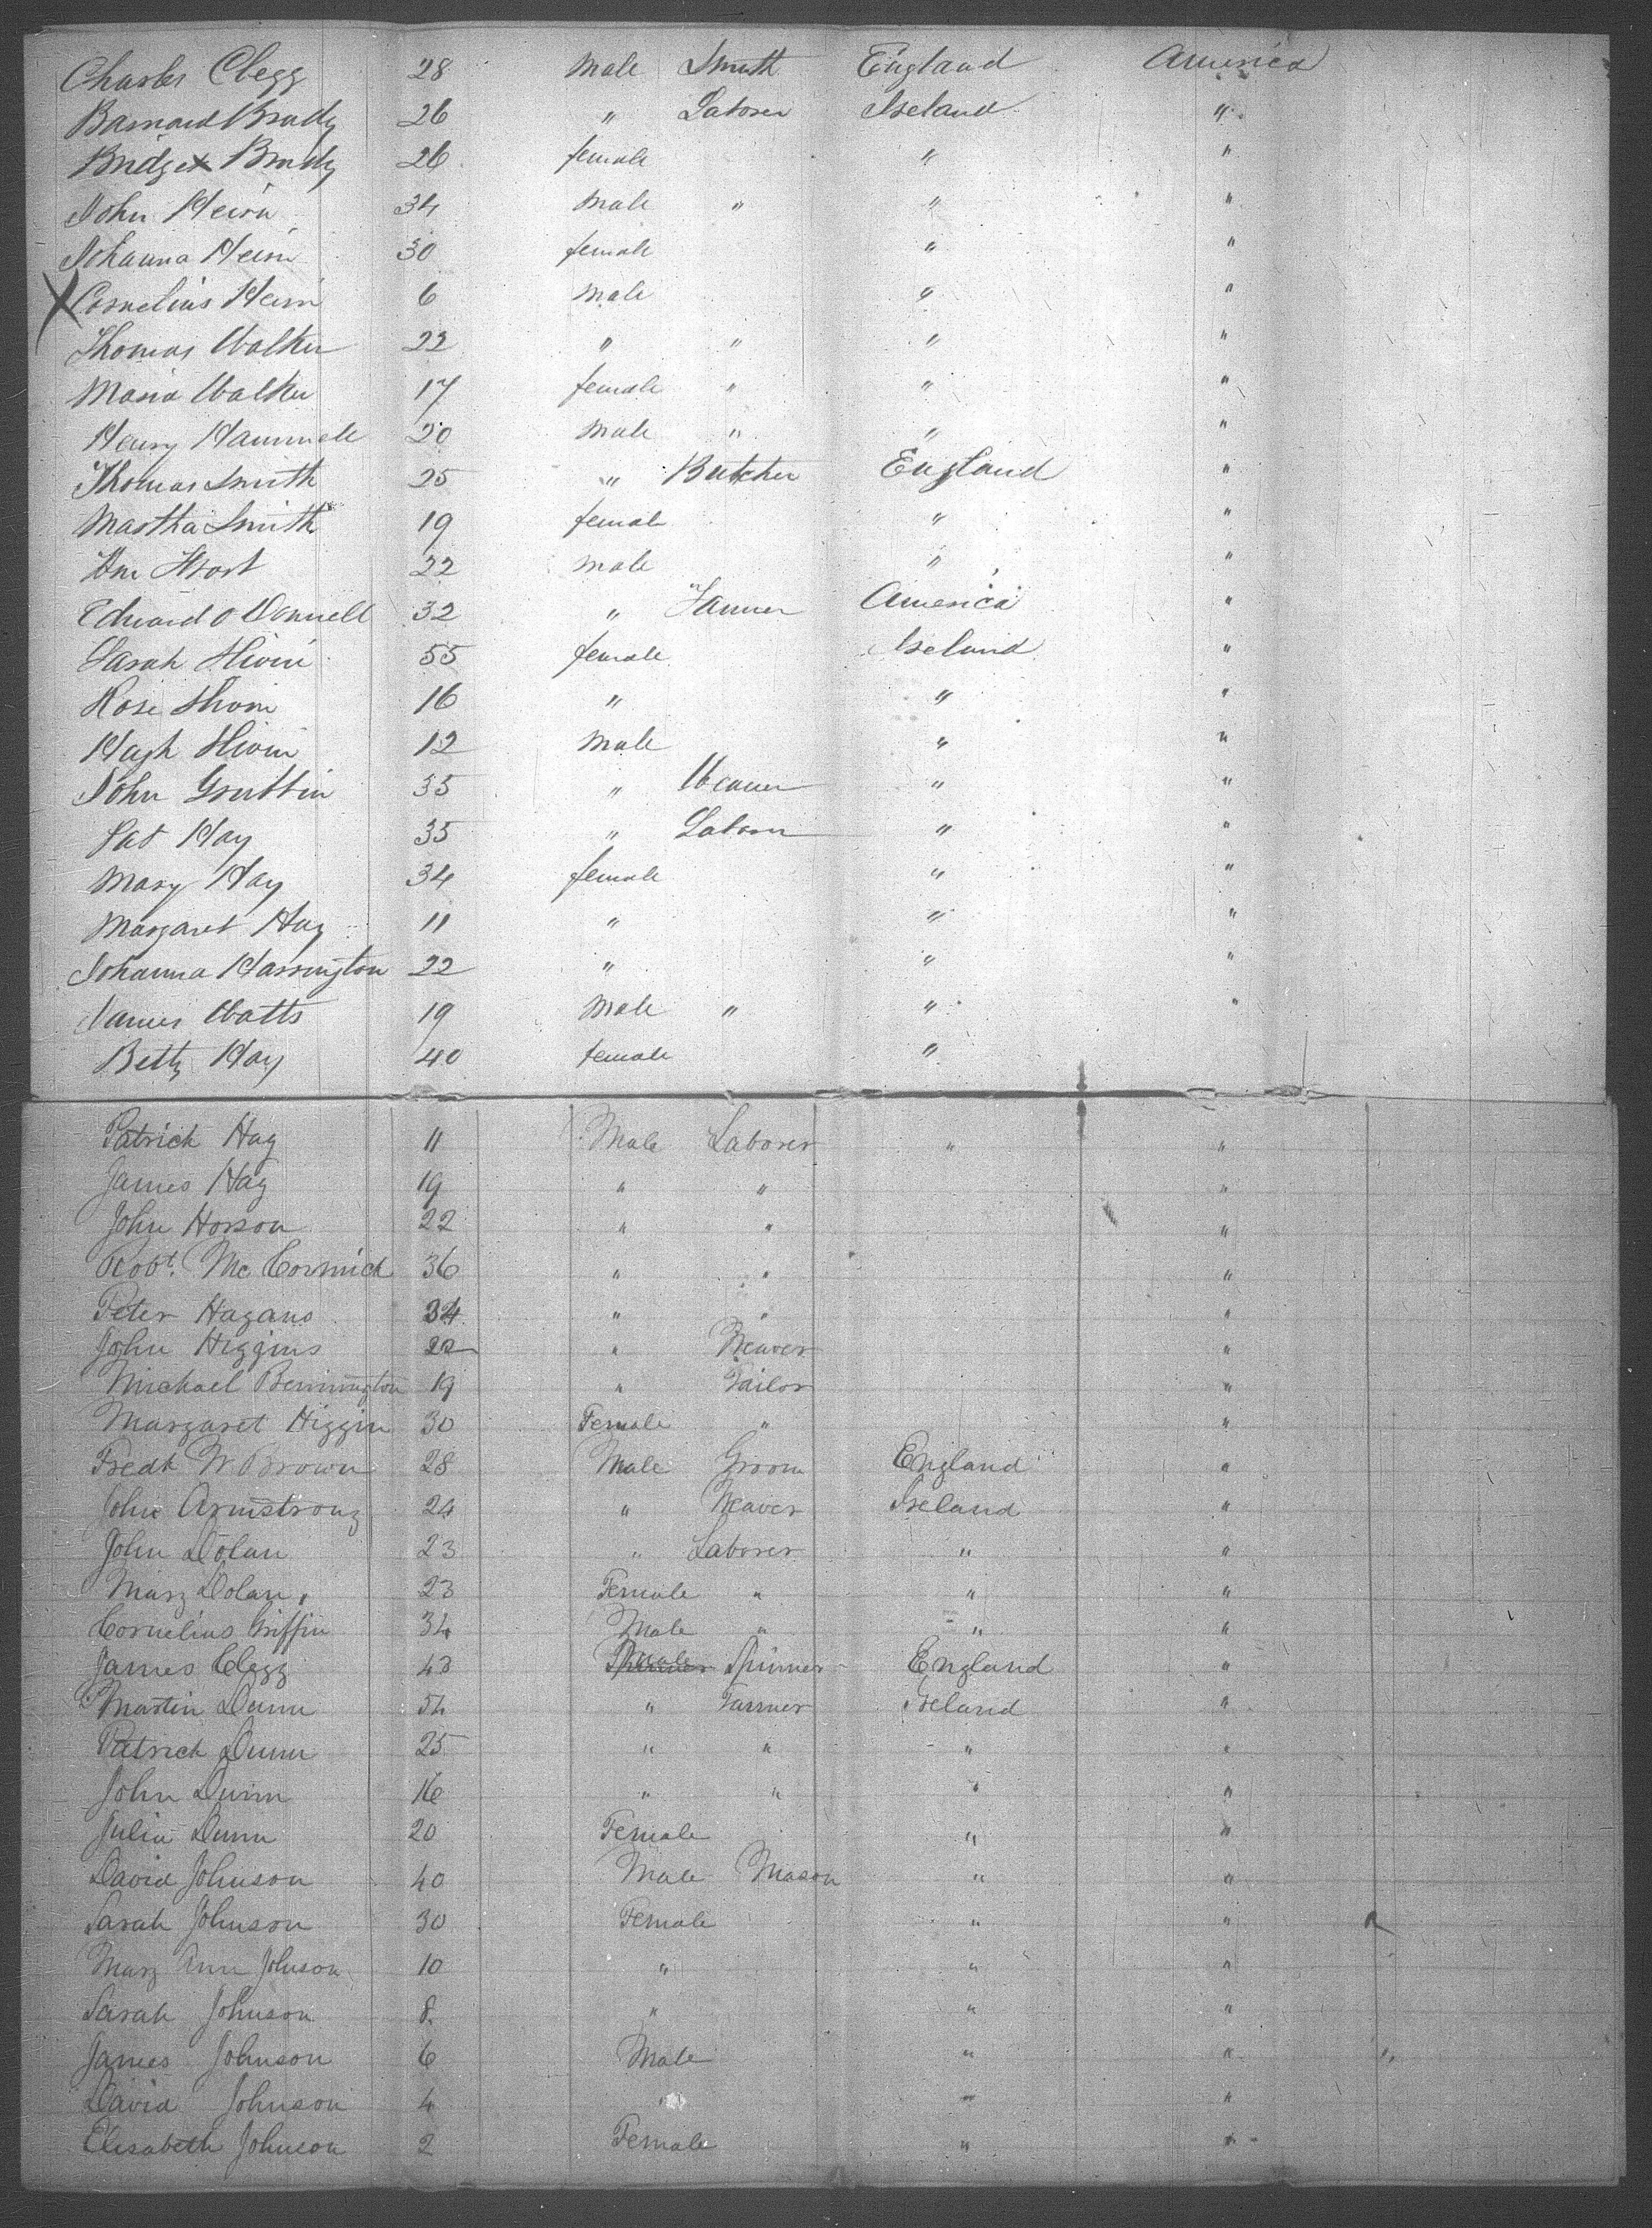 Charles Clegg 28 Male Smith England America
Barnard Brady 26 " Laborer Ireland "
Bridget Brady 26 female " "
John Heirn 34 Male " " "
Johanna Heirn 30 female " "
X Cornelius Heirn 6 Male " "
Thomas Walker 22 " " " "
Maria Walker 17 female " " "
Henry Hammell 20 Male " " "
Thomas Smith 25 " Butcher England "
Martha Smith 19 female " "
Wm 22 male " "
Edward O Donnell 32 " America "
Sarah 55 female Ireland "
Rose 16 " " "
Hugh 12 Male " "
John 35 " Weaver " "
Pat Hay 35 " Laborer " "
Mary Hay 34 female " "
Margaret Hay 11 " " "
Johanna Harrington 22 " " "
James Watts 19 Male " " "
Betty Hay 40 female "
Patrick Hay 11 Male Laborer " "
James Hay 19 " " "
John Horson 22 " " "
Robt. Mc Cormick 36 " " "
Peter Hagans 34 " " "
John Higgins 22 " Weaver "
Michael Bennington 19 " Tailor "
Margaret Higgin 30 Female " "
Fredk W Brown 28 Male Groom England "
John Armstrong 24 " Weaver Ireland "
John Dolan 23 " Laborer " "
Mary Dolan 23 Female " " "
Cornelius Griffin 34 Male " " "
James Clegg 43 Male Spinner England "
Martin Dunn 54 " Farmer Ireland "
Patrick Dunn 25 " " " "
John Dunn 16 " " " "
Julia Dunn 20 Female " "
David Johnson 40 Male Mason " "
Sarah Johnson 30 Female " "
Mary Ann Johnson 10 " " "
Sarah Johnson 8 " " "
James Johnson 6 Male " "
David Johnson 4 " " "
Elisabeth Johnson 2 Female " "